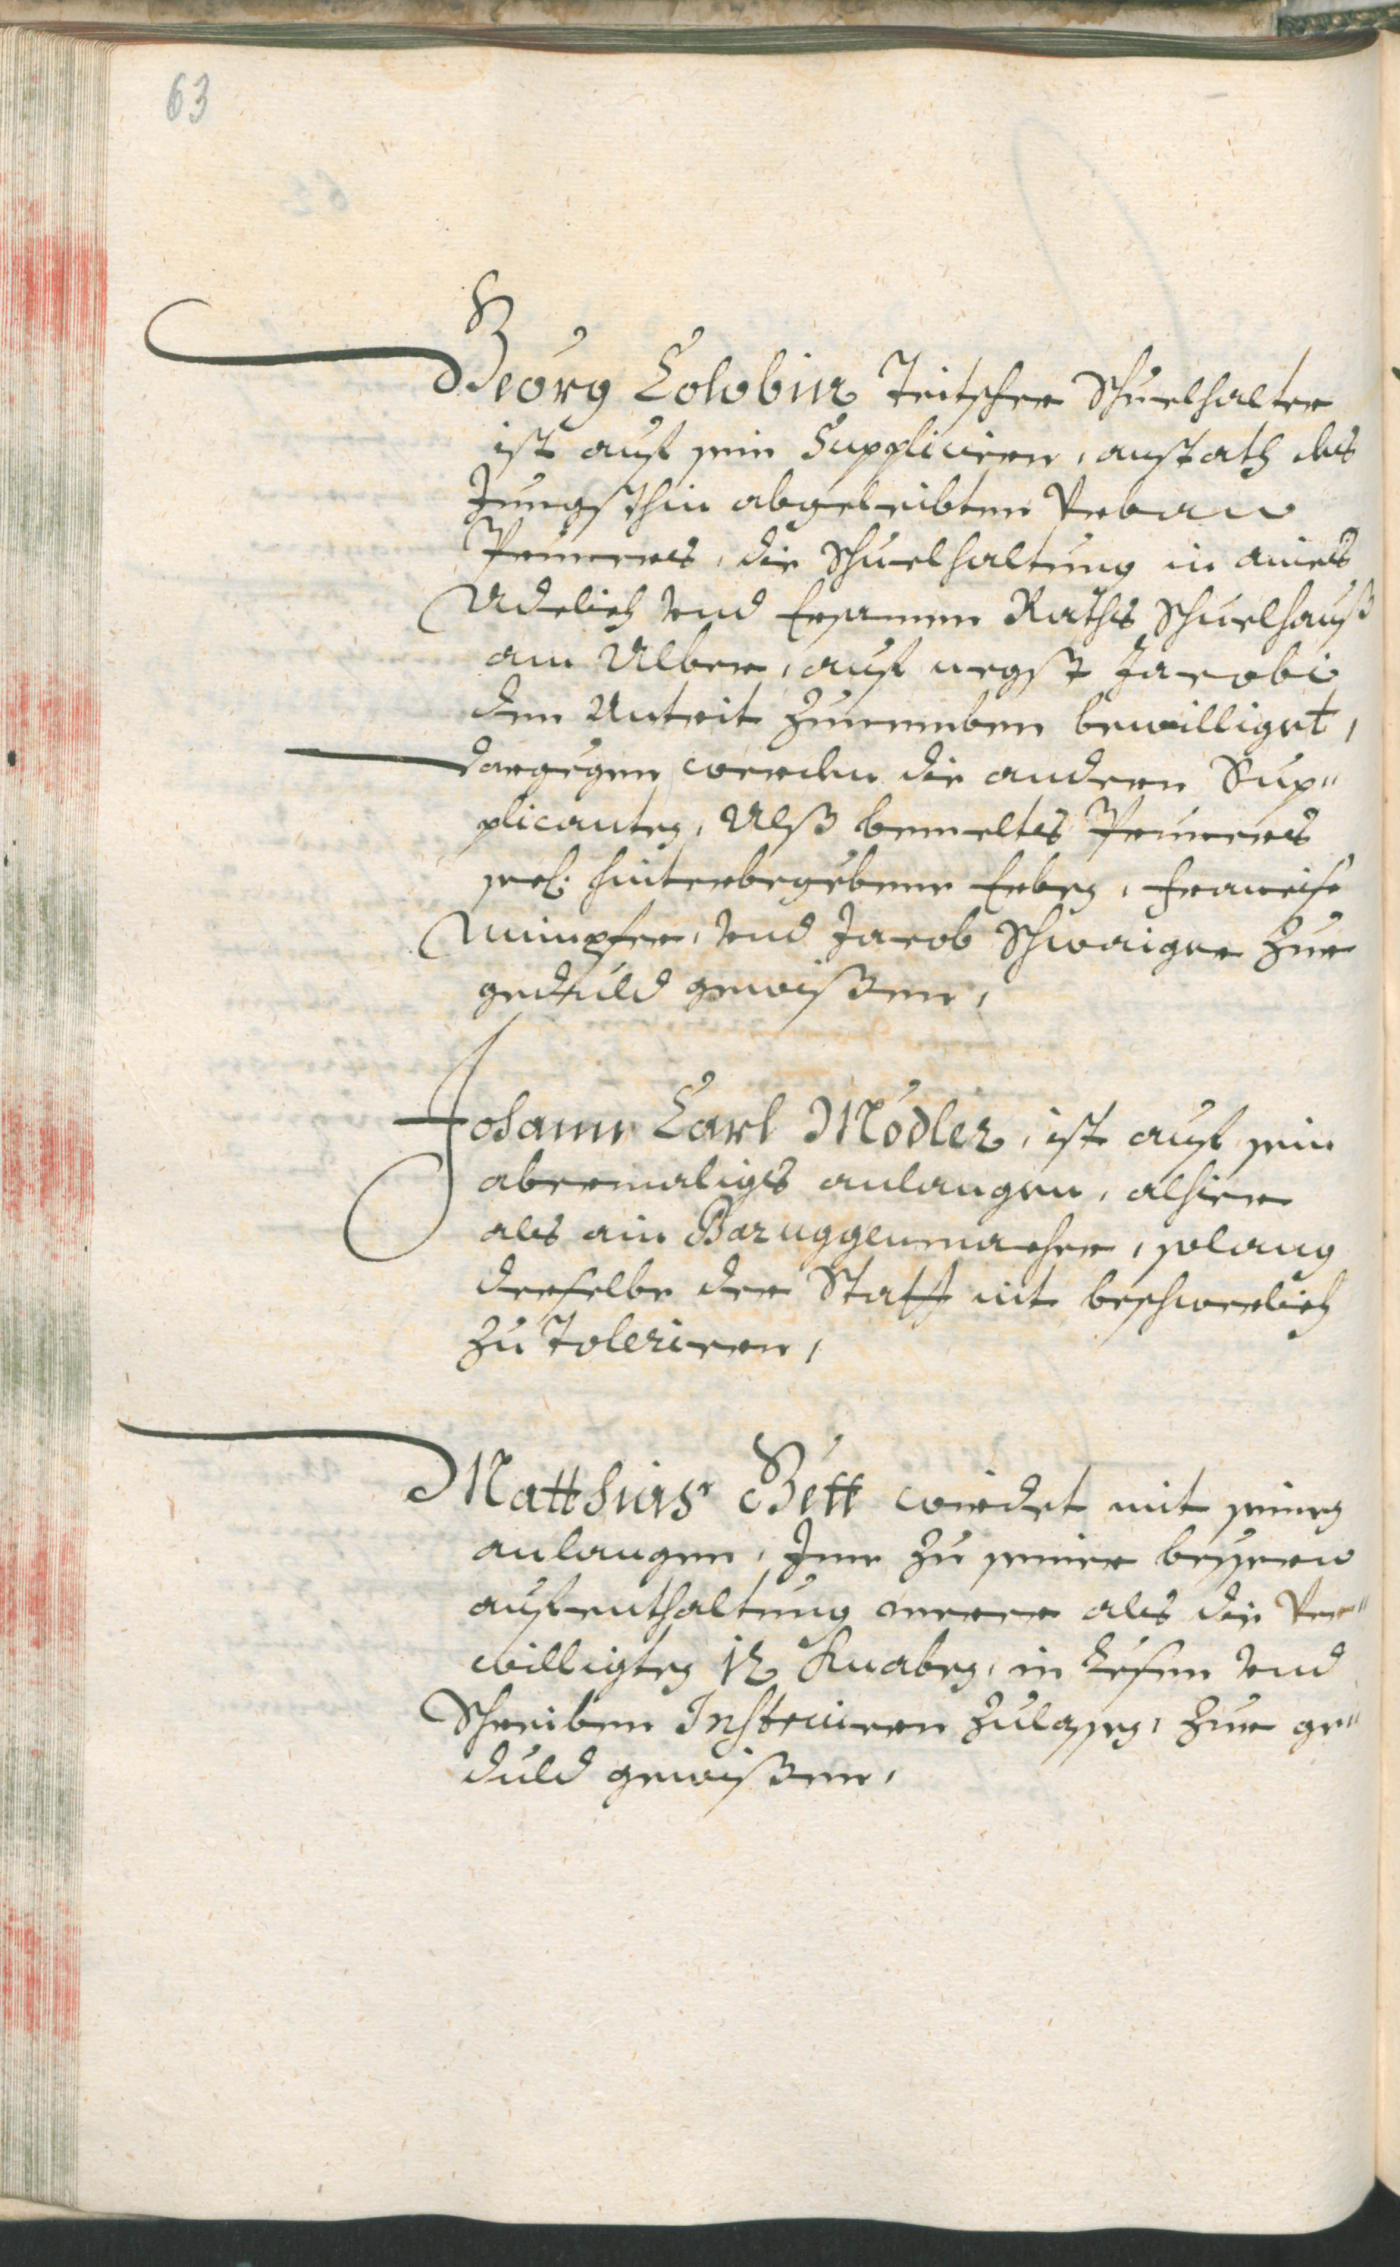 63
Georg Colobin Teitscher Schuelhalter
ist auf sein Suppliciern, anstath des
Jungsthin abgeleibten Urban
Pruners, die Schuelhaltung in aines
Adelich vnd Ersamen Raths Schuelhauß
am Alber, auf negst Jacobi
den Antrit zunemben bewilliget,
dargegen werden die andern Sup"
plicanten, Alß bemeltes Pruners
seel: hinterbegebene Erben, Francisc
Wimpfer, vnd Jacob Schwaiger zur
gedtuld gewißen,
Johann Carl Mödler, ist auf sein
abermaliges anlangen, alhier
als ain Baruggenmacher, solang
derselbe der Statt nit beschwerlich
zu Toleriern,
Matthias Bött wirdet mit seinen
anlangen, Ime zu seiner bessern
aufenthaltung merer als die Ver"
willigten 12 Knaben, in Lesen vnd
Schreiben Instruiern zulassen, zur ge"
duld gewißen,